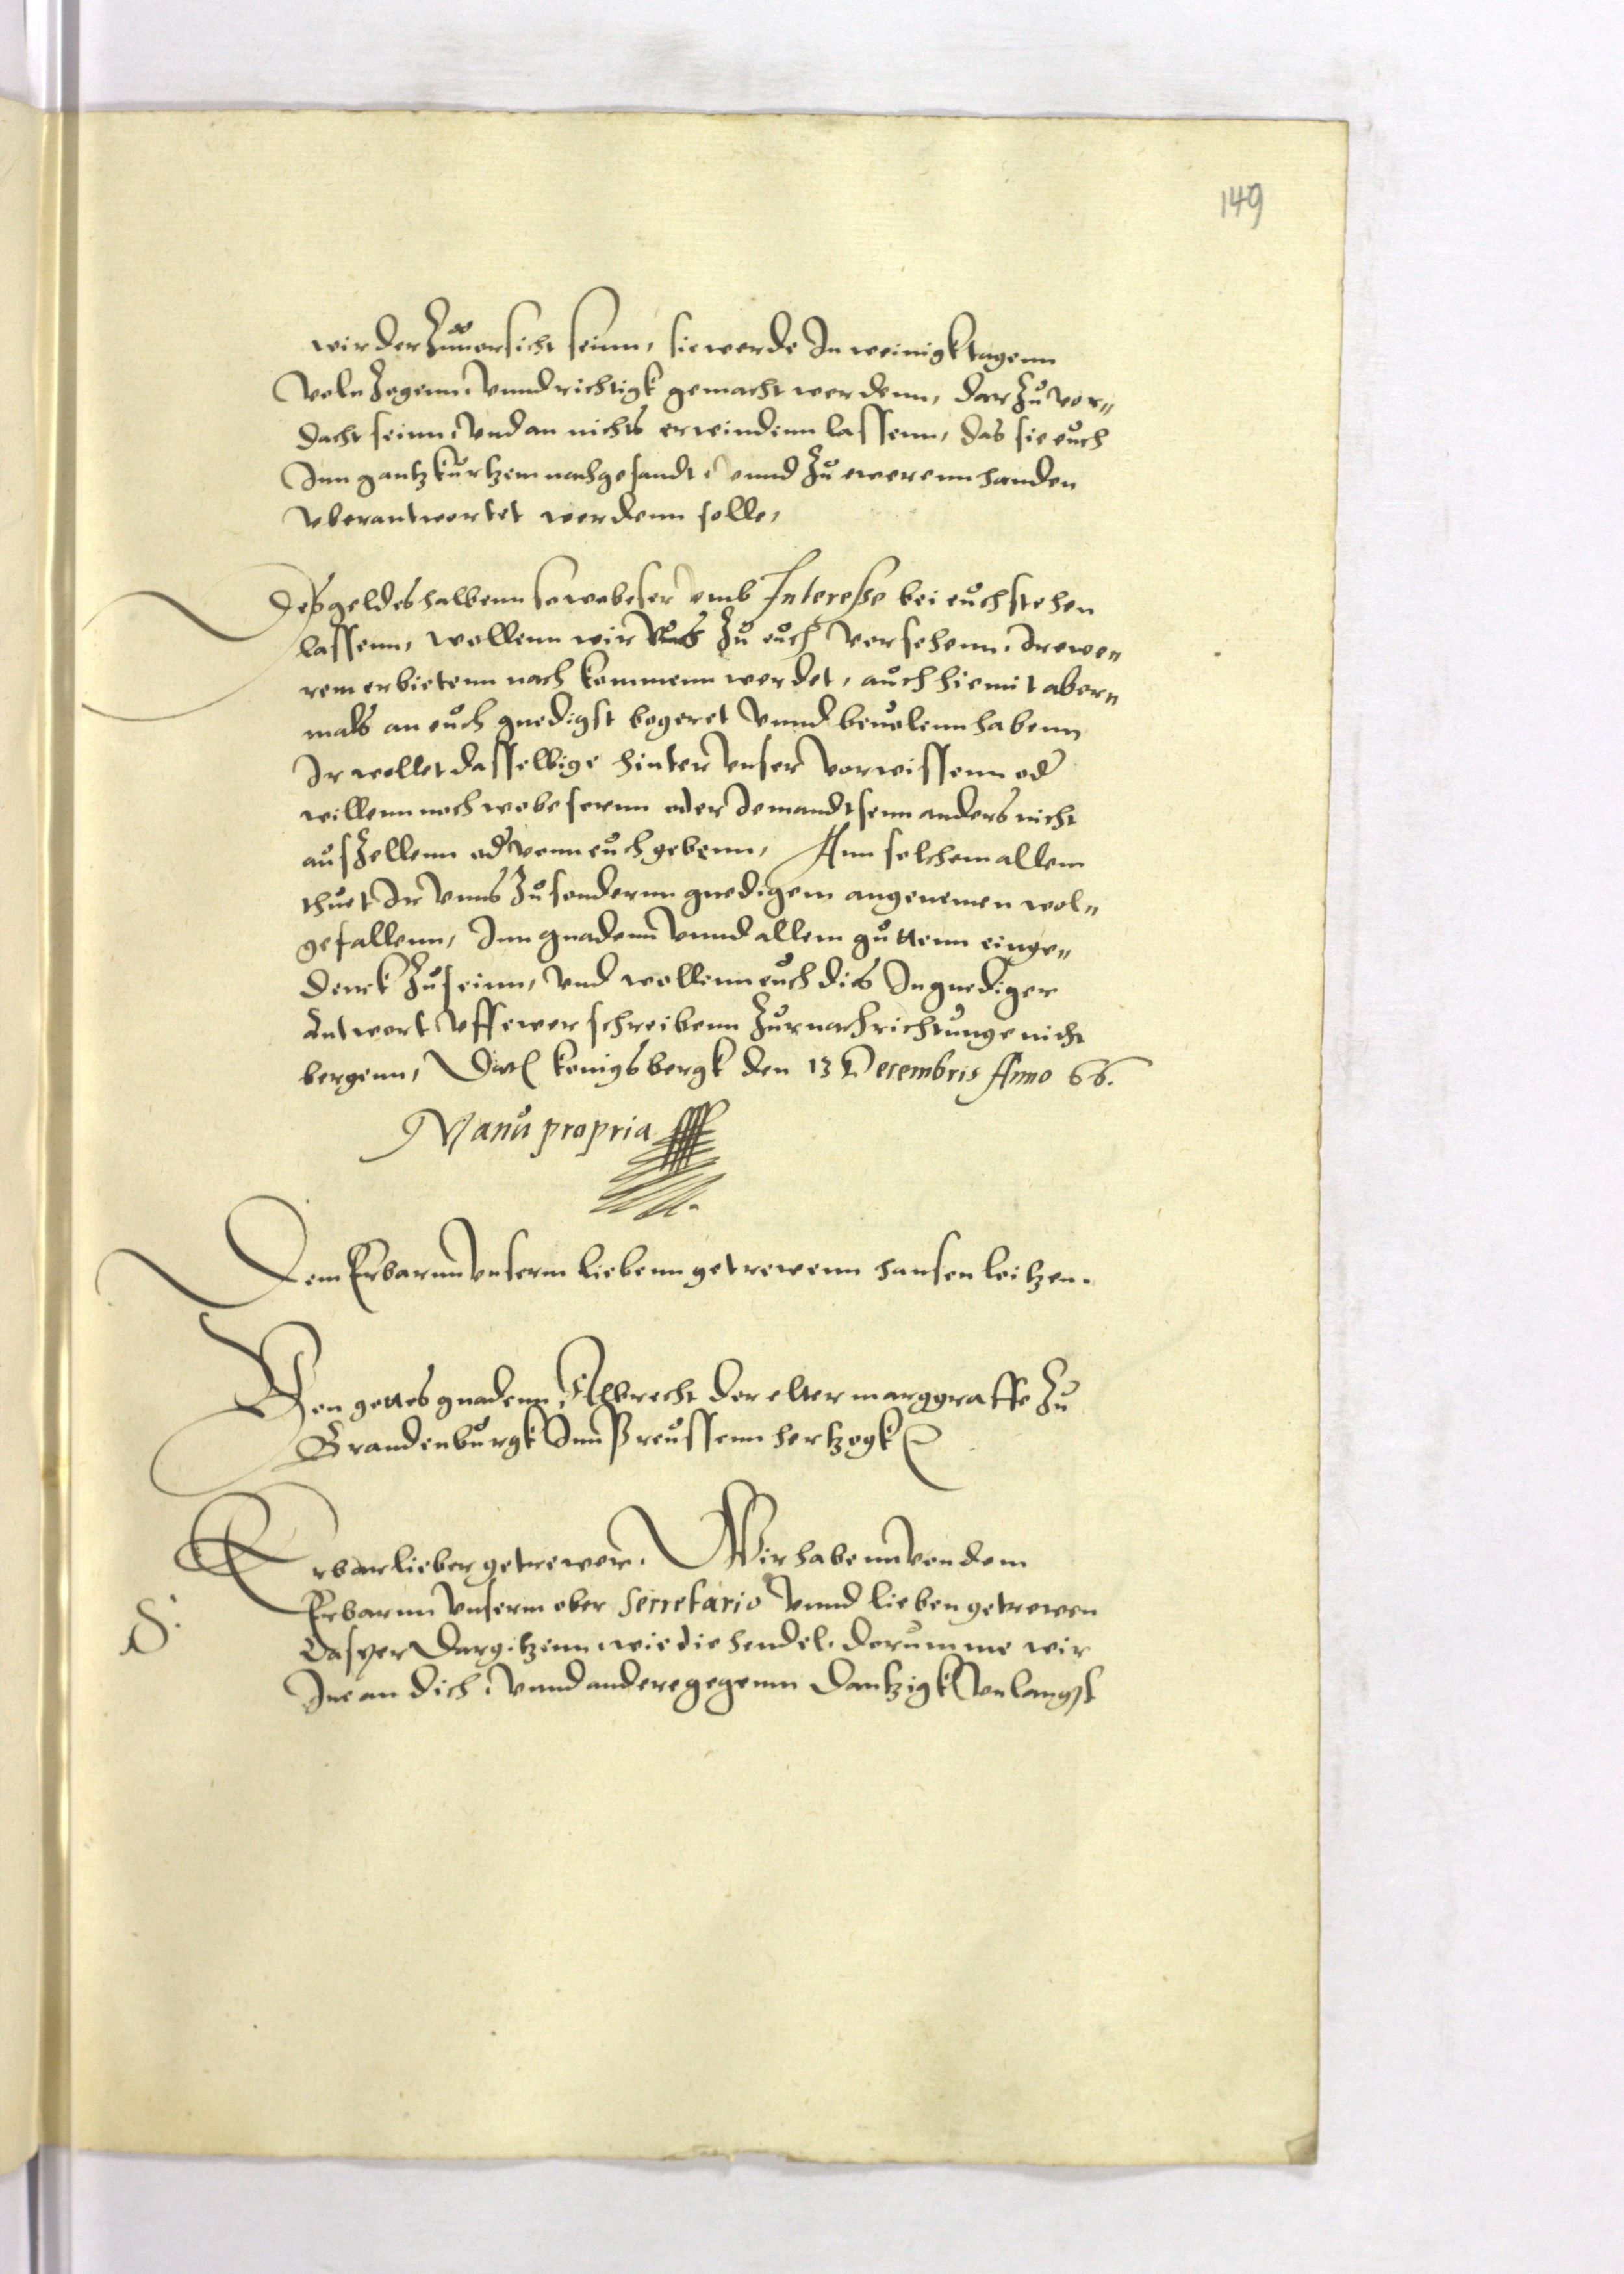 149
wir der Zuuorsicht seinn, sie werde In weinigk tagenn
Volnzogenn, Vnnd richtigk gemacht werdenn, dar Zu vor„
dacht seinn, Vnd an nichts erwindenn lassenn, das sie euch
Inn gantz kurtzem nachgesandt, vnnd Zu ewerenn handen
vberantwortet werdenn solle,
Deß geldes halbenn so wobeser vmb Interesse bei euch stehen
lassenn, wollenn wir Vnns Zu euch vorsehenn, Ir ewe„
rem erbietenn nach kommenn werdet, auch hiemit aber„
mals an euch gnedigst begeret Vnnd beuolenn habenn
Ir wollet dasselbige hinter Vnser Vorwissenn od
willenn noch wobesernn oder Jemandtsenn anders nicht
aus Zellenn od vonn euch gebenn, Ann solchem allem
thuet Ir Vnns Zu sondernn gnedigem angenemen wol„
gefallenn, Inn gnadenn Vnnd allem guttenn einge„
denck Zu seinn, Vnd wollenn euch dis In gnediger
Antwort Vff ewer schreibenn Zur nachrichtunge nicht
bergenn, Dat konigsbergk den 13 Decembris Anno 66.
Manu propria
Dem Erbarnn Vnserm liebenn getrewenn hansen leitzen.
Von gottes gnadenn, Albrecht der elter marggraffe Zu
Brandenburgk Inn Preussenn hertzogk
Erbar lieber getrewer. Wir habenn von dem
Erbarnn Vnserm ober Secretario Vnnd lieben getrewen
Casper Dargitzenn, wie die hendel, dorumme wir
Ine an dich, Vnnd andere gegenn Dantzigk Vnlangst